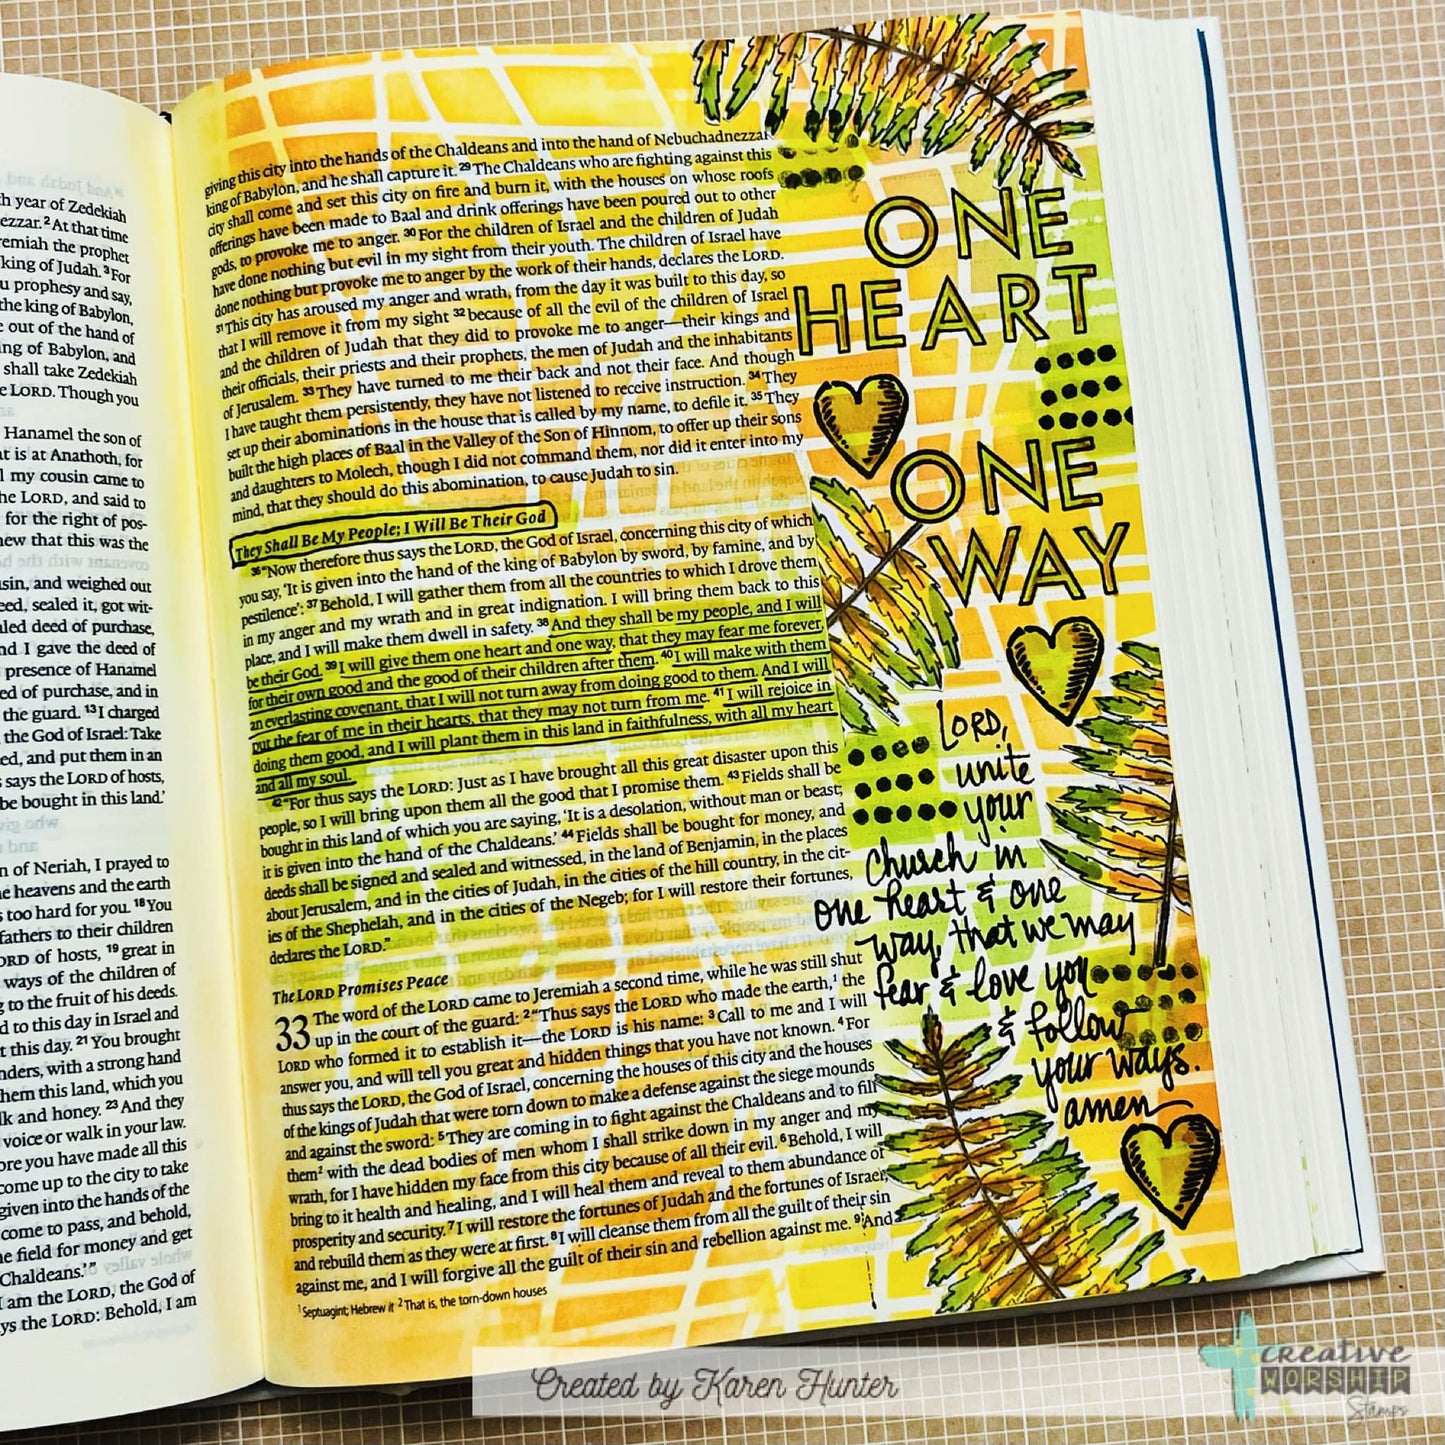 th year of Zedekiah
ezzar. 2 At that time
remiah the prophet
king of Judah. 3 For
u prophesy and say,
the king of Babylon,
e out of the hand of
ing of Babylon, and
shall take Zedekiah
e LORD. Though you
Hanamel the son of
at is at Anathoth, for
l my cousin came to
the LORD, and said to
for the right of pos-
new that this was the
usin, and weighed out
eed, sealed it, got wit-
aled deed of purchase,
nd I gave the deed of
e presence of Hanamel
ed of purchase, and in
the guard. 13 I charged
the God of Israel: Take
ed, and put them in an
s says the LORD of hosts,
be bought in this land.'
n of Neriah, I prayed to
he heavens and the earth
s too hard for you. 18 You
fathers to their children
ORD of hosts, 19 great in
ways of the children of
g to the fruit of his deeds.
d to this day in Israel and
t this day. 21 You brought
nders, with a strong hand
hem this land, which you
lk and honey. 23 And they
voice or walk in your law.
ore you have made all this
come up to the city to take
given into the hands of the
come to pass, and behold,
he field for money and get
Chaldeans.'"
I am the LORD, the God of
ys the LORD: Behold, I am
giving this city into the hands of the Chaldeans and into the hand of Nebuchadnezzar
king of Babylon, and he shall capture it. 29 The Chaldeans who are fighting against this
city shall come and set this city on fire and burn it, with the houses on whose roofs
offerings have been made to Baal and drink offerings have been poured out to other
gods, to provoke me to anger. 30 For the children of Israel and the children of Judah
have done nothing but evil in my sight from their youth. The children of Israel have
done nothing but provoke me to anger by the work of their hands, declares the LORD.
31 This city has aroused my anger and wrath, from the day it was built to this day, so
that I will remove it from my sight 32 because of all the evil of the children of Israel
and the children of Judah that they did to provoke me to anger—their kings and
their officials, their priests and their prophets, the men of Judah and the inhabitants
of Jerusalem. 33 They have turned to me their back and not their face. And though
I have taught them persistently, they have not listened to receive instruction. 34 They
set up their abominations in the house that is called by my name, to defile it. 35 They
built the high places of Baal in the Valley of the Son of Hinnom, to offer up their sons
and daughters to Molech, though I did not command them, nor did it enter into my
mind, that they should do this abomination, to cause Judah to sin.
They Shall Be My People; I Will Be Their God
36 "Now therefore thus says the LORD, the God of Israel, concerning this city of which
you say, 'It is given into the hand of the king of Babylon by sword, by famine, and by
pestilence': 37 Behold, I will gather them from all the countries to which I drove them
in my anger and my wrath and in great indignation. I will bring them back to this
place, and I will make them dwell in safety. 38 And they shall be my people, and I will
be their God. 39 I will give them one heart and one way, that they may fear me forever,
for their own good and the good of their children after them. 40 I will make with them
an everlasting covenant, that I will not turn away from doing good to them. And I will
put the fear of me in their hearts, that they may not turn from me. 41 I will rejoice in
doing them good, and I will plant them in this land in faithfulness, with all my heart
and all my soul.
42 "For thus says the LORD: Just as I have brought all this great disaster upon this
people, so I will bring upon them all the good that I promise them. 43 Fields shall be
bought in this land of which you are saying, 'It is a desolation, without man or beast;
it is given into the hand of the Chaldeans.' 44 Fields shall be bought for money, and
deeds shall be signed and sealed and witnessed, in the land of Benjamin, in the places
about Jerusalem, and in the cities of Judah, in the cities of the hill country, in the cit-
ies of the Shephelah, and in the cities of the Negeb; for I will restore their fortunes,
declares the LORD."
The LORD Promises Peace
33 The word of the LORD came to Jeremiah a second time, while he was still shut
up in the court of the guard: 2 "Thus says the LORD who made the earth,1 the
LORD who formed it to establish it—the LORD is his name: 3 Call to me and I will
answer you, and will tell you great and hidden things that you have not known. 4 For
thus says the LORD, the God of Israel, concerning the houses of this city and the houses
of the kings of Judah that were torn down to make a defense against the siege mounds
and against the sword: 5 They are coming in to fight against the Chaldeans and to fill
them2 with the dead bodies of men whom I shall strike down in my anger and my
wrath, for I have hidden my face from this city because of all their evil. 6 Behold, I will
bring to it health and healing, and I will heal them and reveal to them abundance of
prosperity and security. 7 I will restore the fortunes of Judah and the fortunes of Israel,
and rebuild them as they were at first. 8 I will cleanse them from all the guilt of their sin
against me, and I will forgive all the guilt of their sin and rebellion against me. 9 And
1 Septuagint; Hebrew it 2 That is, the torn-down houses
ONE
HEART
ONE
WAY
LORD,
unite
your
church in
one heart & one
way, that we may
fear & love you
& follow
your ways.
amen
Created by Karen Hunter
creative
WORSHIP
Stamps